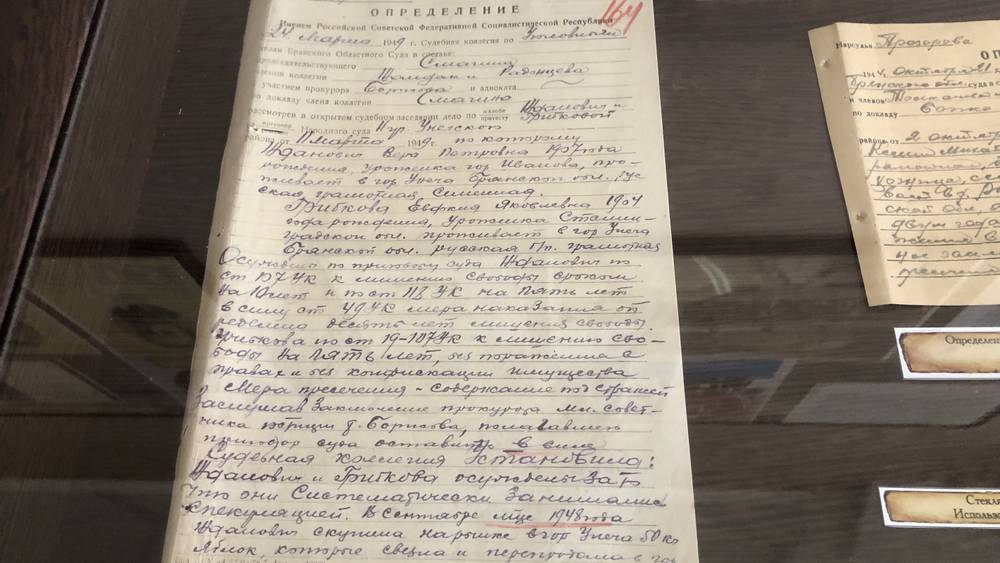 ОПРЕДЕЛЕНИЕ
164
Именем Российской Советской Федеративной Социалистической Республики
24 Марта 1949 г. Судебная коллегия по Уголовным
делам Брянского Областного Суда в составе:
председательствующего Смагина
членов коллегии и Радонцева
с участием прокурора и адвоката
по докладу члена коллегии Смагина
рассмотрев в открытом судебном заседании дело по жалобе протесту Жданович и Грибковой
на приговор Народного суда Унечского
района от 11 Марта 1949 г. по которому
Жданович Вера Петровна 1907 года
рождения, урожен­ка гор Иванова, про-
живает в гор Унеча Брянской обл. Рус-
ская, грамотная Семейная.
Грибкова Евфкия Яковлевна 1904
года рождения, урожен­ка Сталин-
градской обл. проживает в гор Унеча
Брянской обл. русская б/п. грамотная
Осуждена по приговору суда Жданович по
ст 107 УК к лишению свободы сроком
на 10 лет и по ст УК на пять лет
в силу ст 49 УК мера наказания оп
ределена десять лет лишения свободы.
Грибкова по ст 19-107 УК к лишению сво-
боды на пять лет, без поражения в
правах и без конфискации имущества
Мера пресечения - содержание под стражей
Заслушав Заключение прокурора Мл. совет-
ника юстиции т. полагавшего
приговор суда оставить в силе
Судебная коллегия Установила:
Жданович и Грибкова осуждены за то
что они Систематически Занимались
спекуляцией. В Сентябре м-це 1948 года
Жданович скупила на рынке в гор Унеча 50 кг
яблок, которые свезла и перепродала в гор
Нарсудья Прозорова
1944, октября 21
и членов
по докладу
района от 2 октября
Определен
Стекля
Использо